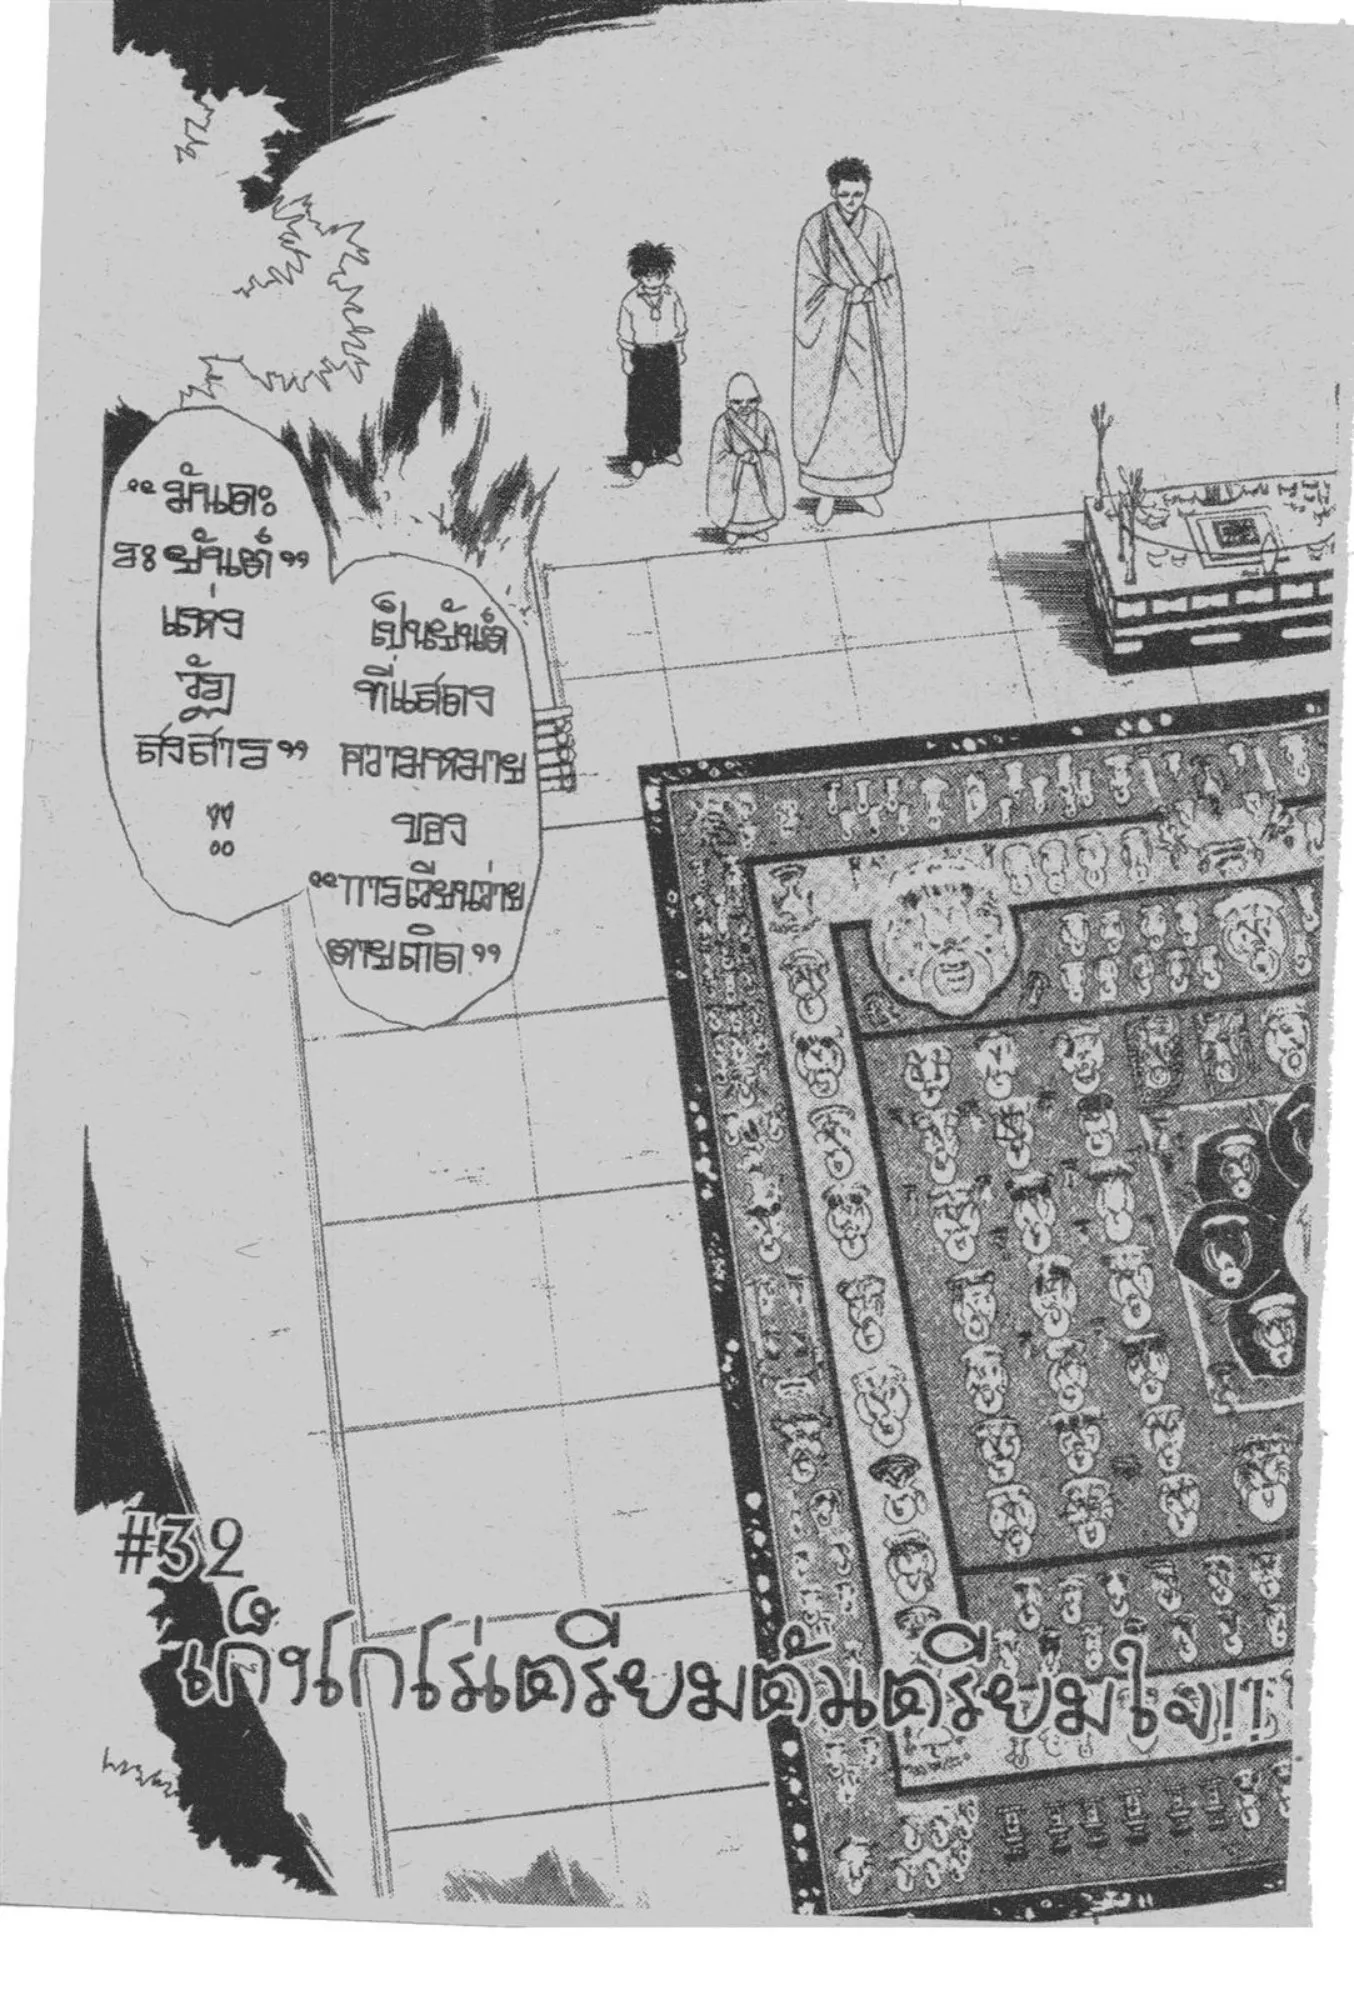 “มันดะ
ระยันต์”
แห่ง
วัฏ
สงสาร”
!!
เป็นยันต์
ที่แสดง
ความหมาย
ของ
“การเวียนว่าย
ตายเกิด”
#32
เก็นโกโร่เตรียมตัวเตรียมใจ!!